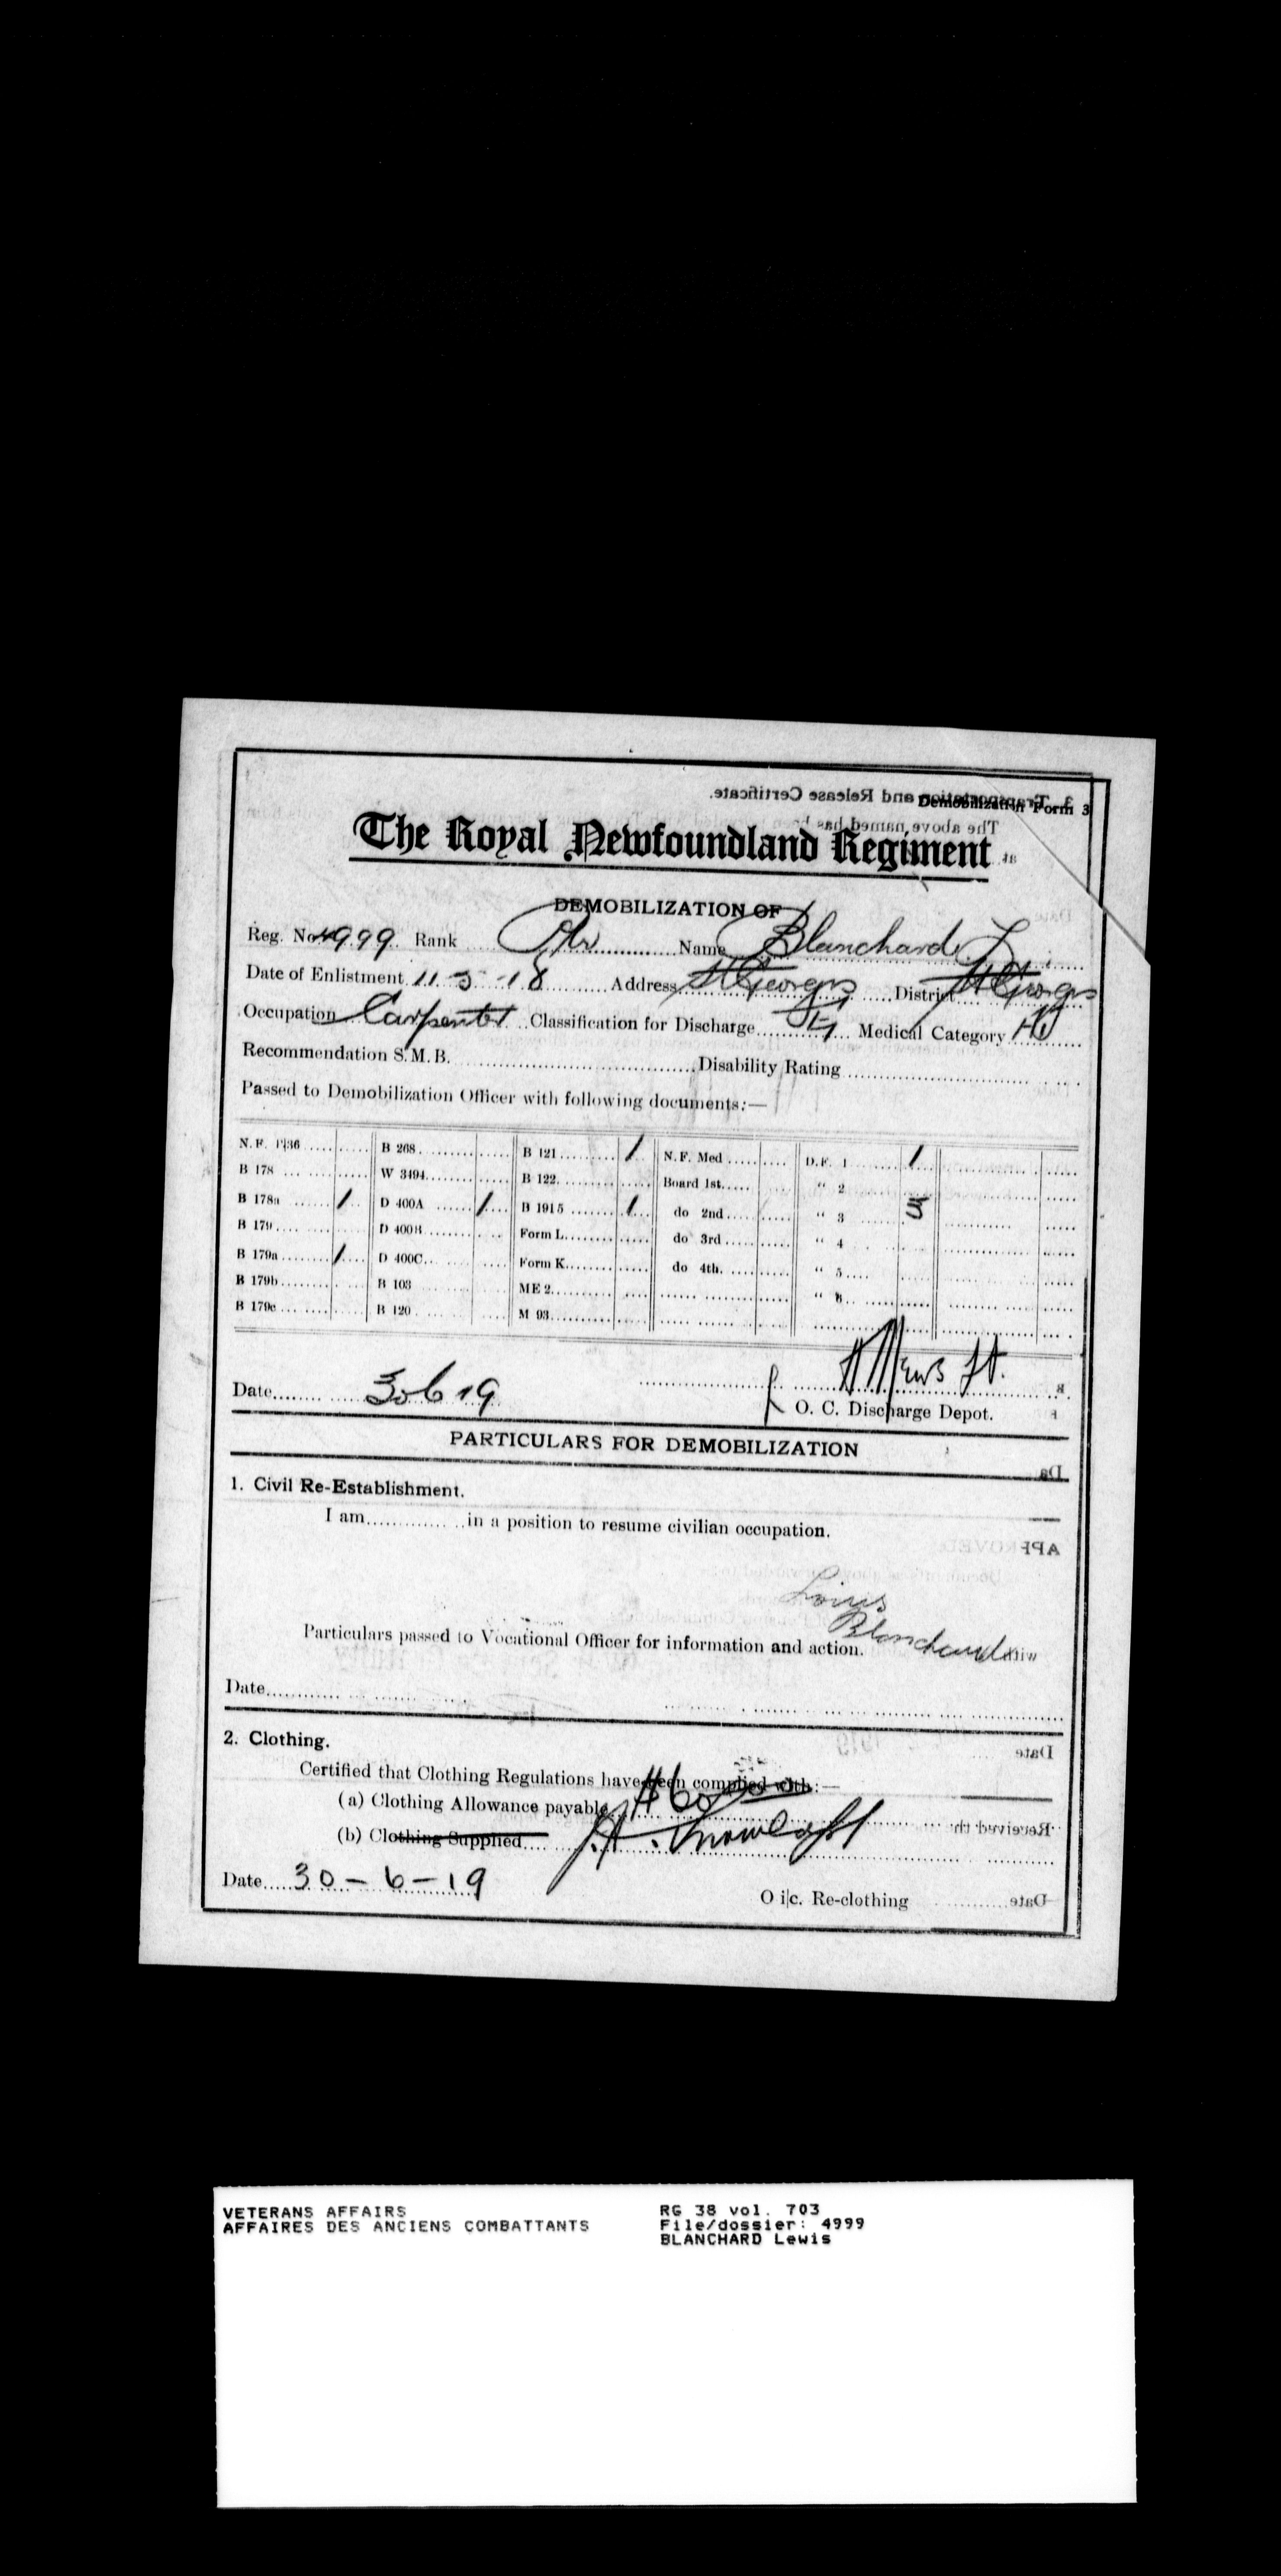 Demobilization Form 3
The Royal Newfoundland Regiment
DEMOBILIZATION OF
Reg. No. 4999 Rank Pte Name Blanchard L.
Date of Enlistment 11-5-18 Address St Georges District St Georges
Occupation Carpenter Classification for Discharge Medical Category
Recommendation S.M.B. Disability Rating
Passed to Demobilization Officer with following documents:—
N.F. P|36 B 268 B 121 / N.F. Med D.F. 1 /
B 178 W 3494 B 122 Board 1st " 2
B 178a / D 400A / B 1915 / do 2nd " 3 3
B 179 D 400B Form L do 3rd " 4
B 179a / D 400C Form K do 4th " 5
B 179b B 103 ME 2 " 6
B 179c B 120 M 93
Date 30 6 19
O. C. Discharge Depot.
PARTICULARS FOR DEMOBILIZATION
1. Civil Re-Establishment.
I am in a position to resume civilian occupation.
Louis
Blanchard
Particulars passed to Vocational Officer for information and action.
Date
2. Clothing.
Certified that Clothing Regulations have been complied with:—
(a) Clothing Allowance payable $60
(b) Clothing Supplied
Date 30-6-19
O i|c. Re-clothing
VETERANS AFFAIRS RG 38 vol. 703
AFFAIRES DES ANCIENS COMBATTANTS File/dossier: 4999
BLANCHARD Lewis